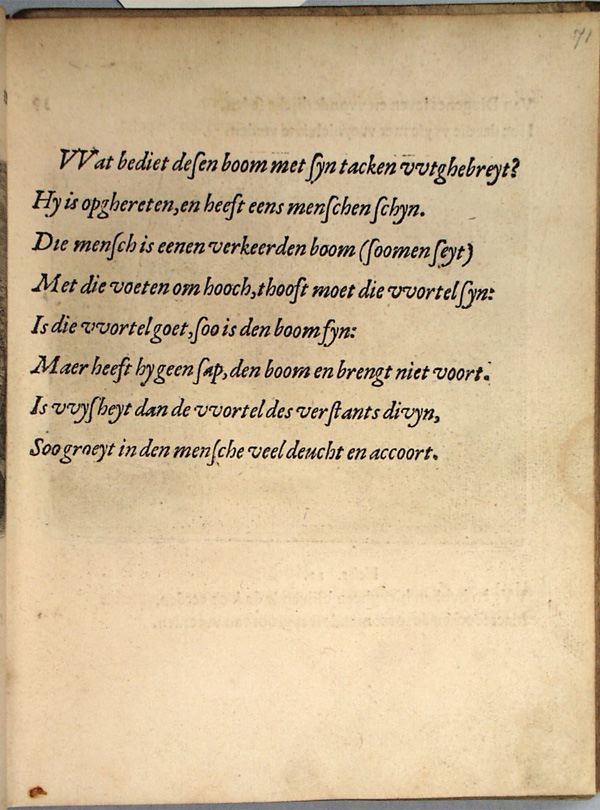 71
VVat bediet deſen boom met ſyn tacken vvtghebreyt?
Hy is opghereten, en heeft eens menſchen ſchyn.
Die menſch is eenen verkeerden boom (ſoomen ſeyt)
Met die voeten om hooch, thooft moet die vvortel ſyn:
Is die vvortel goet, ſoo is den boom fyn:
Maer heeft hy geen ſap, den boom en brengt niet voort.
Is vvyſheyt dan de vvortel des verſtants divyn,
Soo groeyt in den menſche veel deucht en accoort.